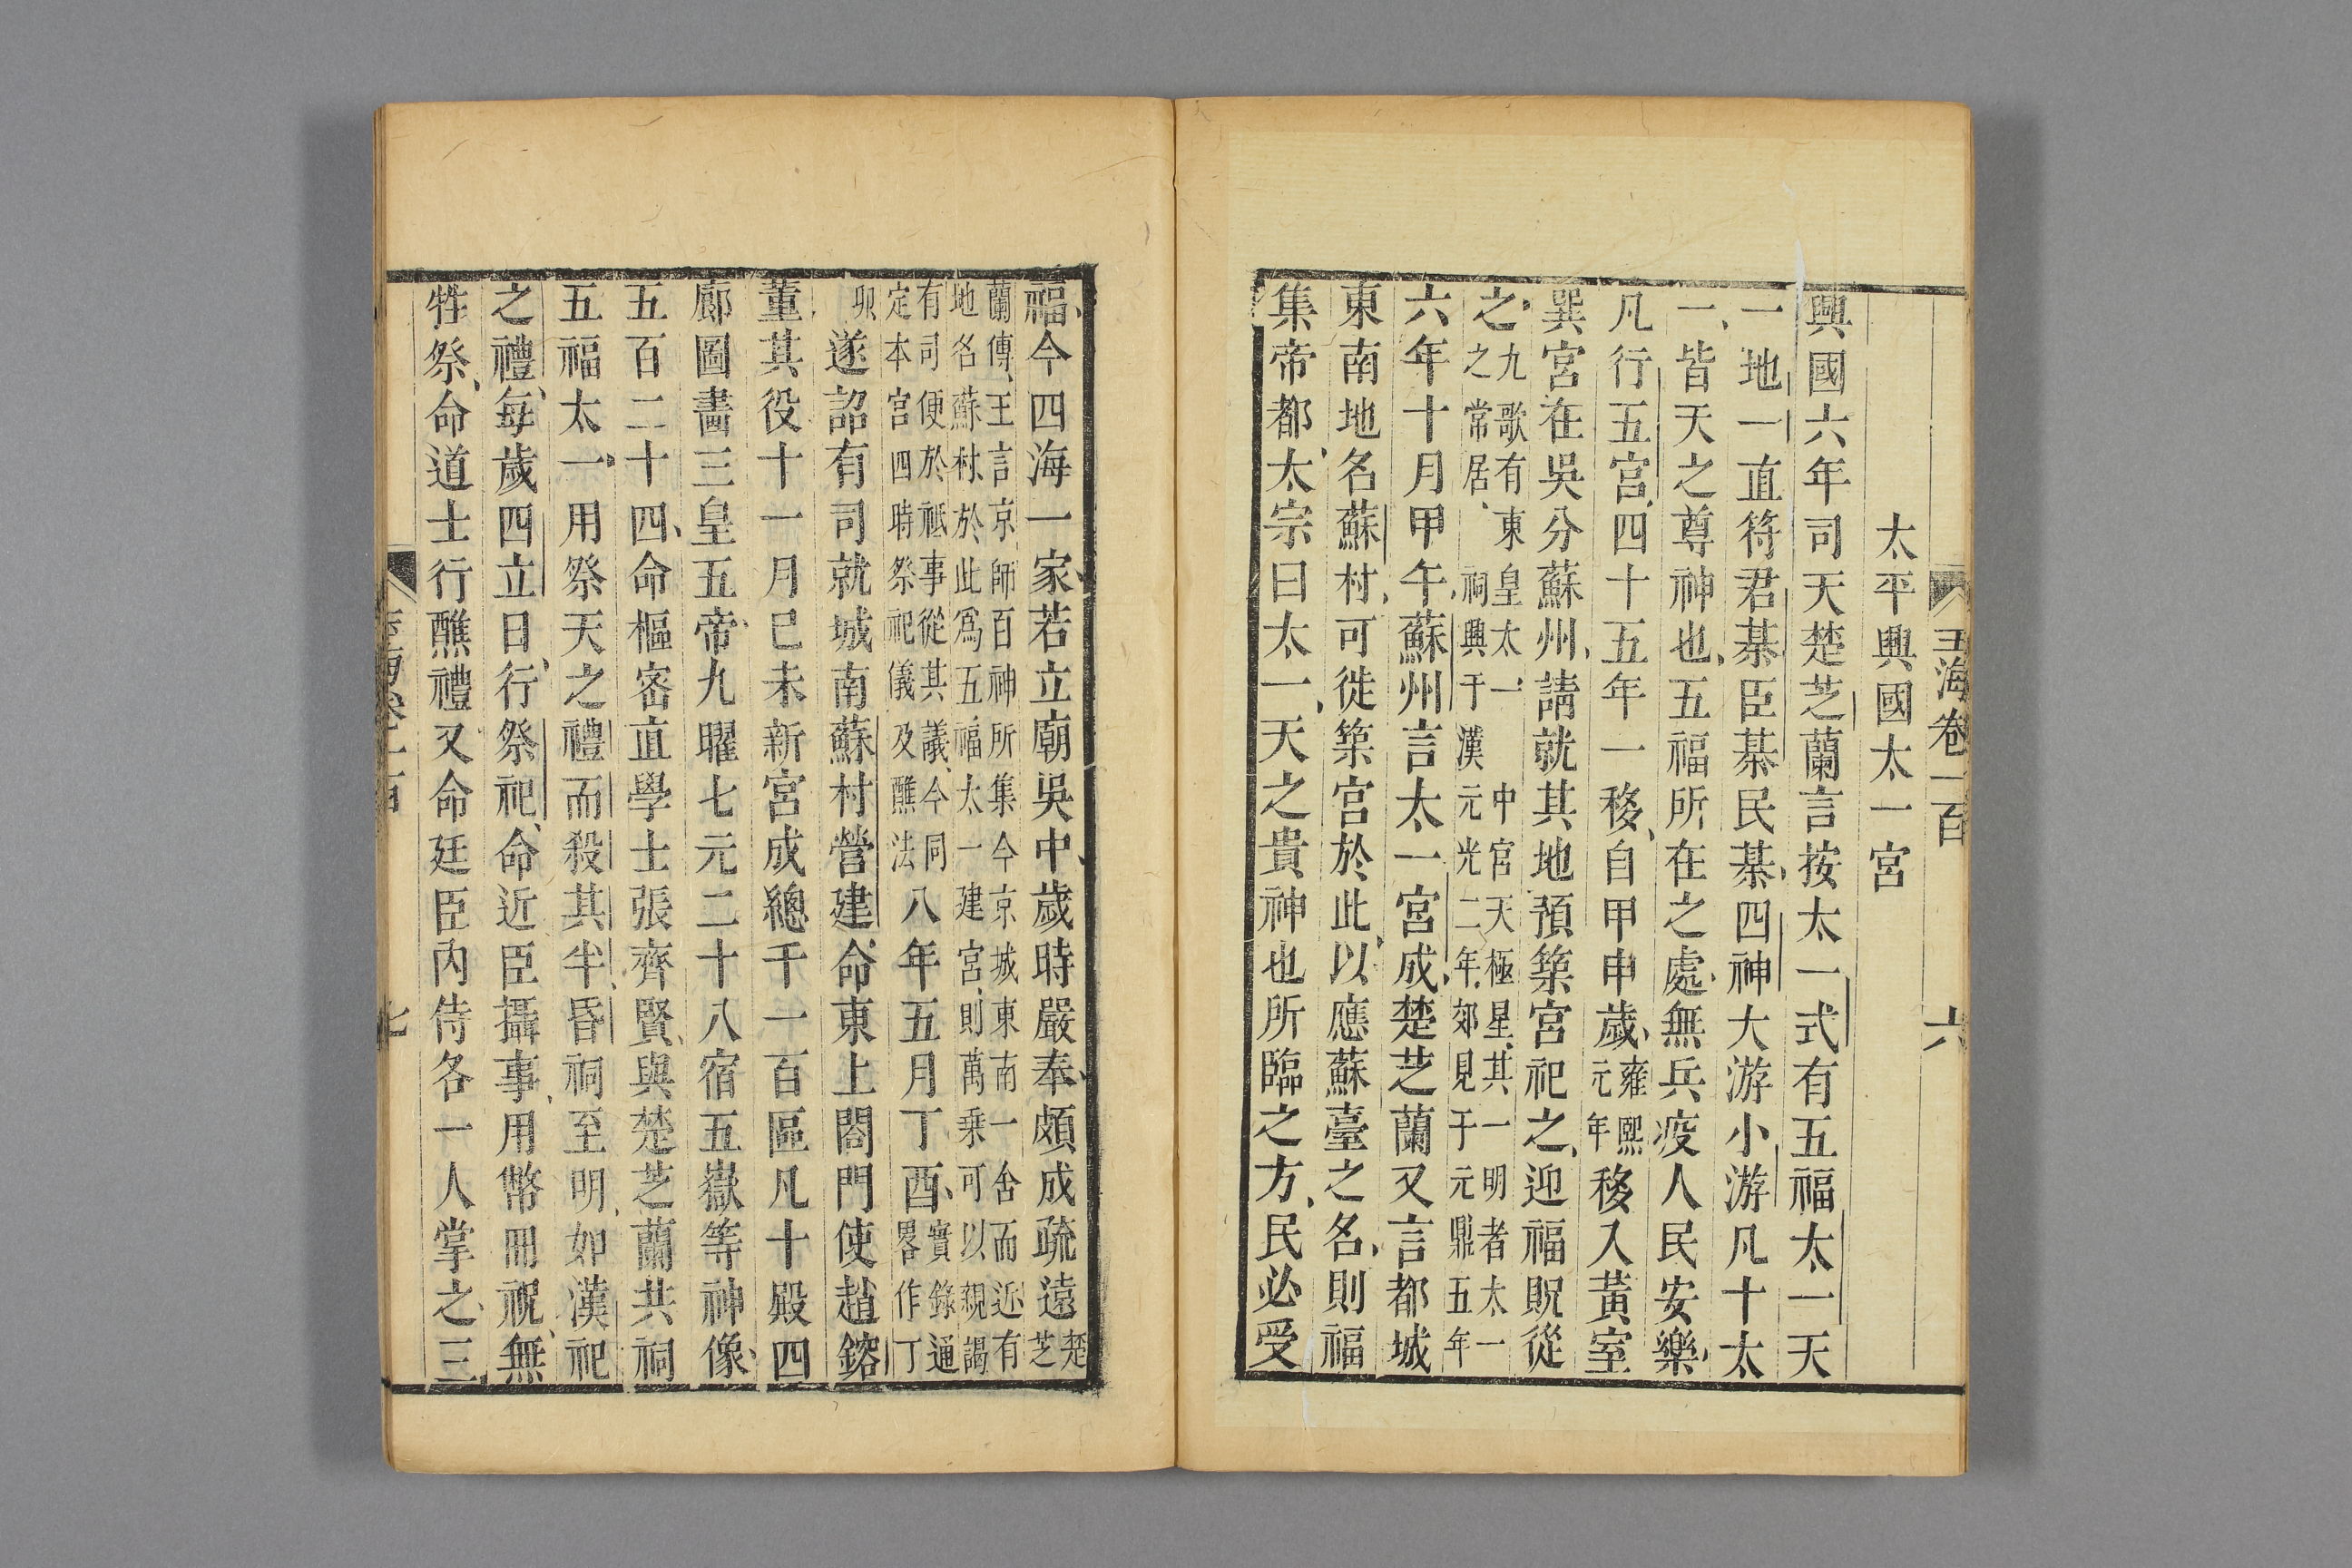 玉海卷一百 六
太平興國太一宮
興國六年司天楚芝蘭言按太一式有五福太一天
一地一直符君棊臣棊民棊四神大游小游凡十太
一皆天之尊神也五福所在之處無兵疫人民安樂
凡行五宮四十五年一移自甲申歲雍熙元年移入黃室
巽宮在吳分蘇州請就其地預築宮祀之迎福貺從
之九歌有東皇太一 中宮天極星其一明者太一之常居 祠興于漢元光二年郊見于元鼎五年
六年十月甲午蘇州言太一宮成楚芝蘭又言都城
東南地名蘇村可徙築宮於此以應蘇臺之名則福
集帝都太宗曰太一天之貴神也所臨之方民必受
福今四海一家若立廟吳中歲時嚴奉頗成疏遠楚芝
蘭傳王言京師百神所集今京城東南一舍而近有地名蘇村於此為五福太一建宮則萬乗可以親謁
有司便於祗事從其議今同定本宮四時祭祀儀及醮法八年五月丁酉實錄通畧作丁
卯遂詔有司就城南蘇村營建命東上閤門使趙鎔
董其役十一月己未新宮成總千一百區凡十殿四
廊圖畫三皇五帝九曜七元二十八宿五嶽等神像
五百二十四命樞密直學士張齊賢與楚芝蘭共祠
五福太一用祭天之禮而殺其半昏祠至明如漢祀
之禮每歲四立日行祭祀命近臣攝事用幣冊祝無
牲祭命道士行醮禮又命廷臣內侍各一人掌之三
七